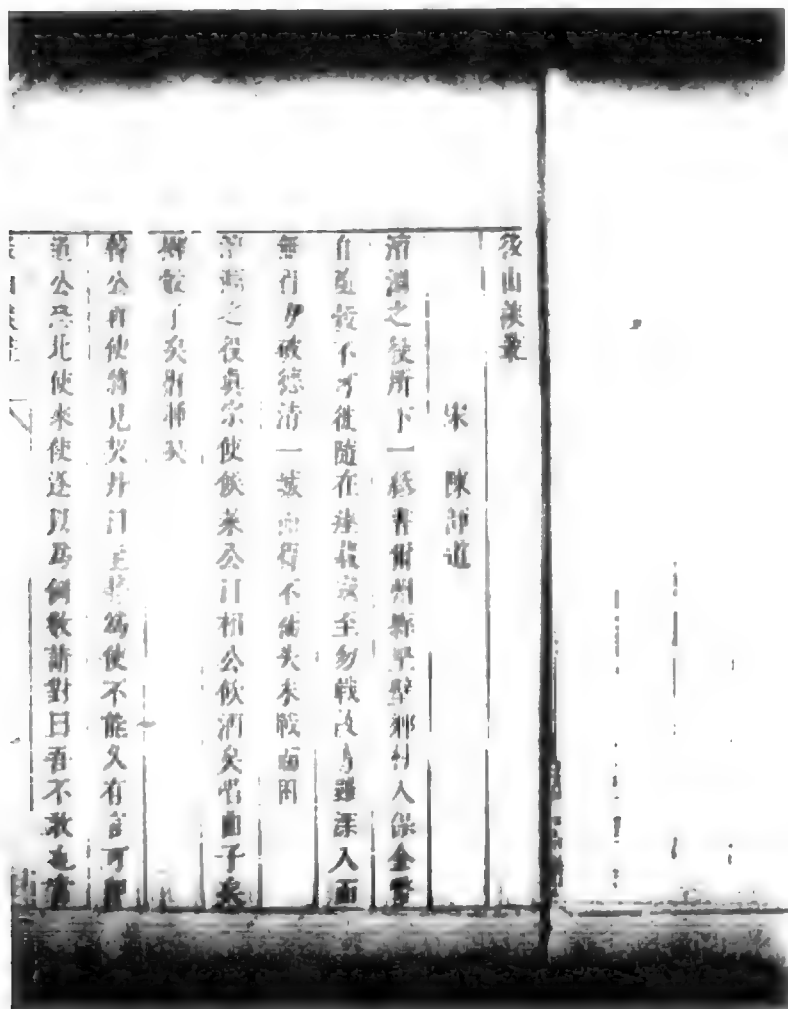 後山談叢
宋 陳師道
澶淵之役所下一紙書爾州縣堅壁鄉村入保金幣
自隨穀不可徙隨在瘞藏寇至勿戰故虜雖深入而
無得 破德清一城而得不補失未戰而困
澶淵之役真宗使候萊公曰相公飲酒矣唱曲子矣
擲骰子矣鼾睡矣
韓公再使將見契丹曰主 為使不能久有言可
道公恐北使來使遂以為例敢請對曰吾不敢也